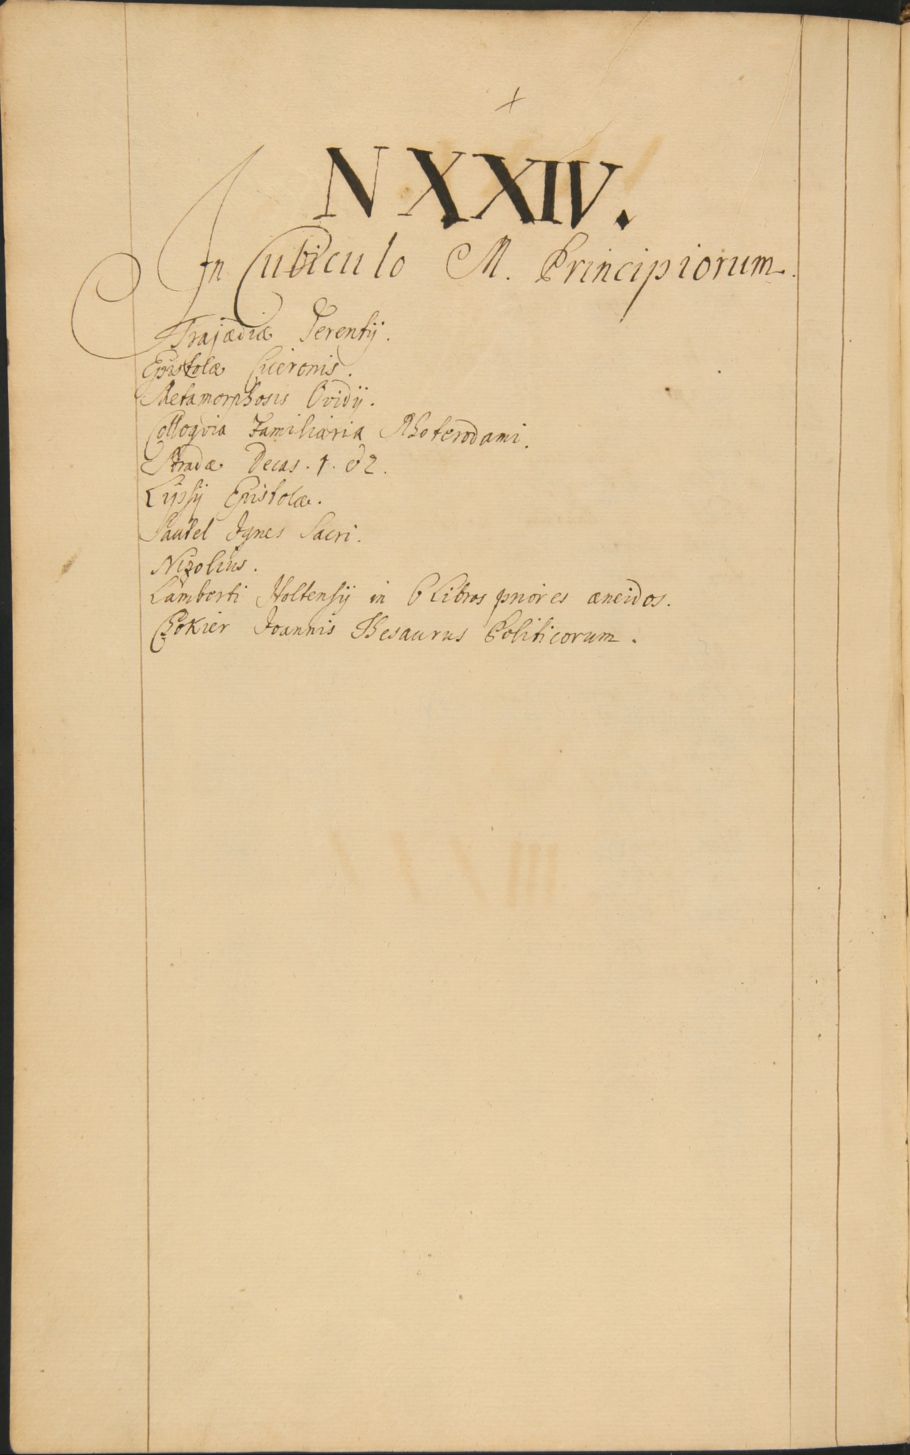 N XXIV.
In Cubiculo M. Principiorum.
Trajædiæ Terentij.
Epistolæ Ciceronis.
Metamorphosis Ovidij.
Colloqvia Familiaria Rhoterodami.
Stradæ Decas. 1. et 2.
Lipsij Epistolæ.
Pautel Ignes Sacri.
Nizolius.
Lamberti Holtensij in 6 Libros priores æneidos.
Chokier Joannis Thesaurus Politicorum.